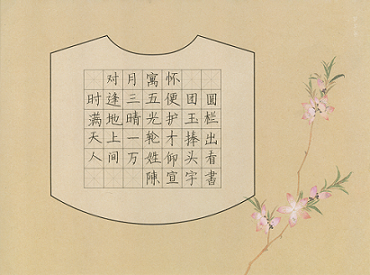 对月寓怀
时逢三五便团圓
满地晴光护玉栏
天上一轮才捧出
人间万姓仰头看
陳宣字書